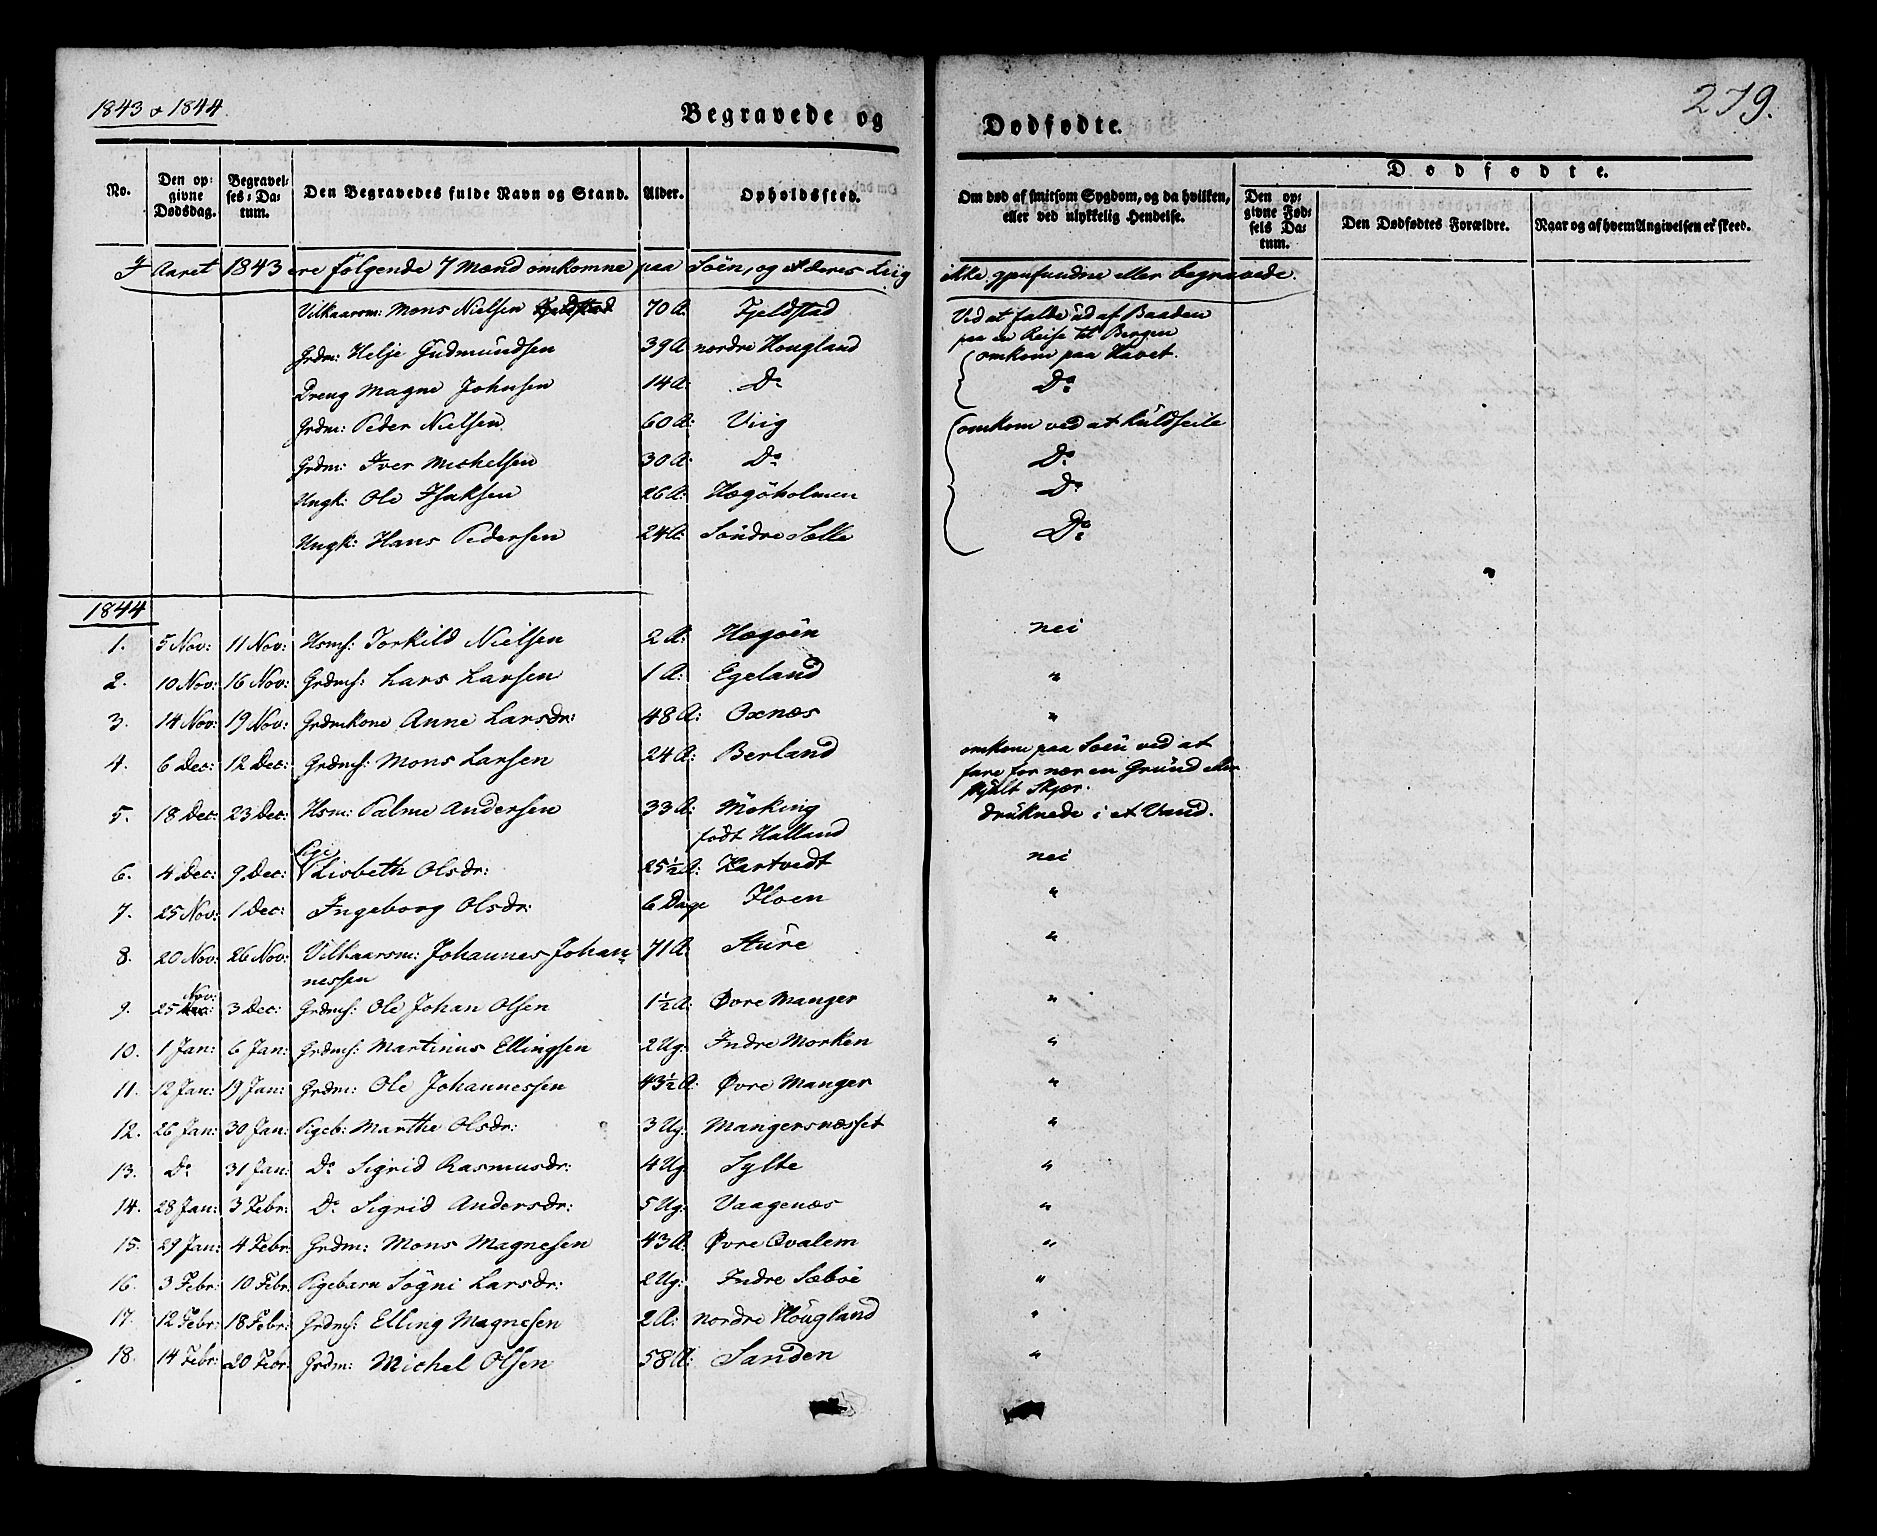 1843 & 1844.
Begravede og
Dødfødte.
279.
No.
Den opgivne Dødsdag.
Begravelses-Datum.
Den Begravedes fulde Navn og Stand.
Alder.
Opholdssted.
Om død af smitsom Sygdom, og da hvilken, eller ved ulykkelig Hendelse.
Dødfødte.
Den opgivne Fødsels Datum.
Den Dødfødtes Forældre.
Naar og af hvem Angivelsen er skeed.
I Aaret 1843 ere følgende 7 Mænd omkomne paa Søen, og deres Liig ikke gjenfundne eller begravede.
Vilkaarsm: Mons Nielsen Fjeldstad 70 A: Fjeldstad Ved at falde ud af Baaden paa en Reise til Bergen
Grdm: Helje Gudmundsen 39 A: nordre Hougland omkom paa Havet.
Dreng Magne Johnsen 14 A: Do Do
Grdm: Peder Nielsen 60 A: Viig omkom ved at kuldseile
Grdm: Iver Michelsen 30 A: Do Do
Ungk: Ole Isaksen 26 A: Hægøholmen Do
Ungk: Hans Pedersen 24 A: Søndre Sølle Do
1844
1. 5 Nov: 11 Nov: Hsms: Torkild Nielsen 2 A: Hægøen nei
2. 10 Nov: 16 Nov: Grdms: Lars Larsen 1 A: Egeland "
3. 14 Nov: 19 Nov: Grdmkone Anne Larsdr: 48 A: Oxnæs "
4. 6 Dec: 12 Dec: Grdms: Mons Larsen 24 A: Berland omkom paa Søen ved at fare for nær en Grund eller skjult Skjær.
5. 18 Dec: 23 Dec: Hsm: Palme Andersen 33 A: Møking født Halland druknede i et Vand.
6. 4 Dec: 9 Dec: Pige Lisbeth Olsdr: 25½ A: Hartvedt nei
7. 25 Nov: 1 Dec: Ingeborg Olsdr: 6 Dage Floen "
8. 20 Nov: 26 Nov: Vilkaarsm: Johannes Johannessen 71 A: Sture "
9. 25 Nov: 3 Dec: Grdms: Ole Johan Olsen 1½ A: Øvre Manger "
10. 1 Jan: 6 Jan: Grdms: Martinus Ellingsen 2 Ug: Indre Morken "
11. 12 Jan: 19 Jan: Grdm: Ole Johannessen 43½ A: Øvre Manger "
12. 26 Jan: 30 Jan: Pigeb: Marthe Olsdr: 3 Ug. Mangersnæsset "
13. Do 31 Jan: Do Sigrid Rasmusdr: 4 Ug. Sylte "
14. 28 Jan: 3 Febr: Do Sigrid Andersdr: 5 Ug: Vaagenæs "
15. 29 Jan: 4 Febr: Grdm: Mons Magnesen 43 A: Øvre Qvalem "
16. 3 Febr: 10 Febr: Pigebarn Søgni Larsdr: 2 Ug: Indre Sæbøe "
17. 12 Febr: 18 Febr: Grdms: Elling Magnesen 2 A: nordre Hougland "
18. 14 Febr: 20 Febr: Grdm: Michel Olsen 58 A: Sanden "